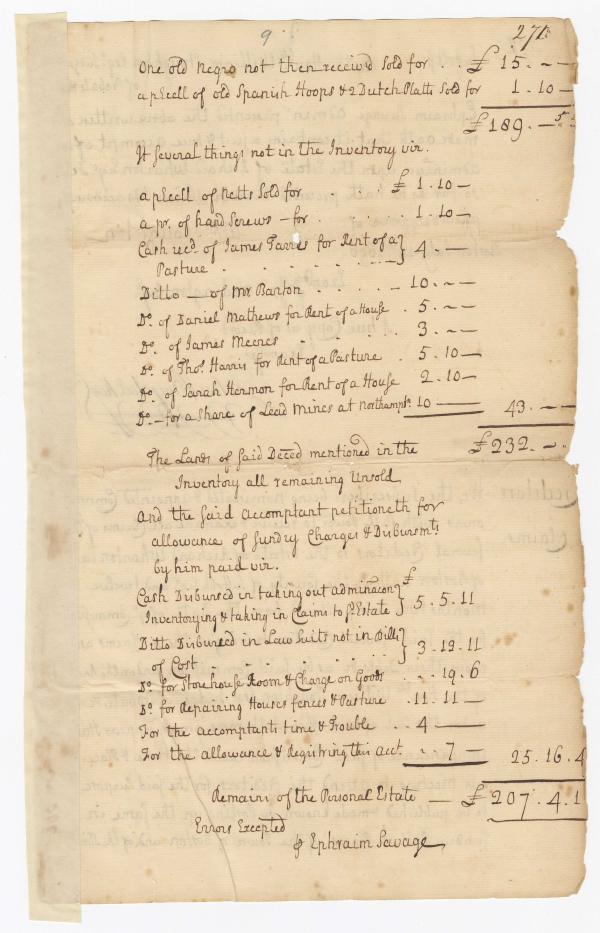 9
271
One old Negro not then receiv'd Sold for . . £ 15. — —
a pcell of old Spanish Hoops & 2 Dutch Platts Sold for 1. 10 —
£ 189. — 5
It Several things not in the Inventory viz.
a pcell of Netts Sold for . . . . £ 1. 10 —
a pr. of hand Screws — for . . . . . 1. 10 —
Cash recd. of James Tarres for Rent of a } 4. —
Pasture . . . . . .
Ditto — of Mr Barton . . . . — 10. — —
Do. of Daniel Mathews for Rent of a House . 5. — —
Do. of James Meeres . . . . . 3. — —
Do. of Thos. Harris for Rent of a Pasture . 5. 10 —
Do. of Sarah Harmon for Rent of a House 2. 10 —
Do. — for a Share of Lead Mines at Northampt. 10 — 43. — —
The Lands of Said Deced mentioned in the £ 232. — .
Inventory all remaining Unsold
And the Said Accomptant petitioneth for
allowance of Sundry Charges & Disbursmts
by him paid viz.
Cash Disbursed in taking out adminacon } £ 5. 5. 11
Inventorying & taking in Claims to sd. Estate
Ditto Disbursed in Law Suits not in Bills } 3. 19. 11
of Cost . . . . . .
Do. for Storehouse Room & Charge on Goods . . . 19. 6
Do. for Repairing Houses fences & Pasture . 11. 11 —
For the accomptants time & Trouble . . 4 —
For the allowance & Registring this acct. . . 7 — 25. 16. 4
Remains of the Personal Estate — £ 207. 4. 1
Errors Excepted
Ephraim Savage